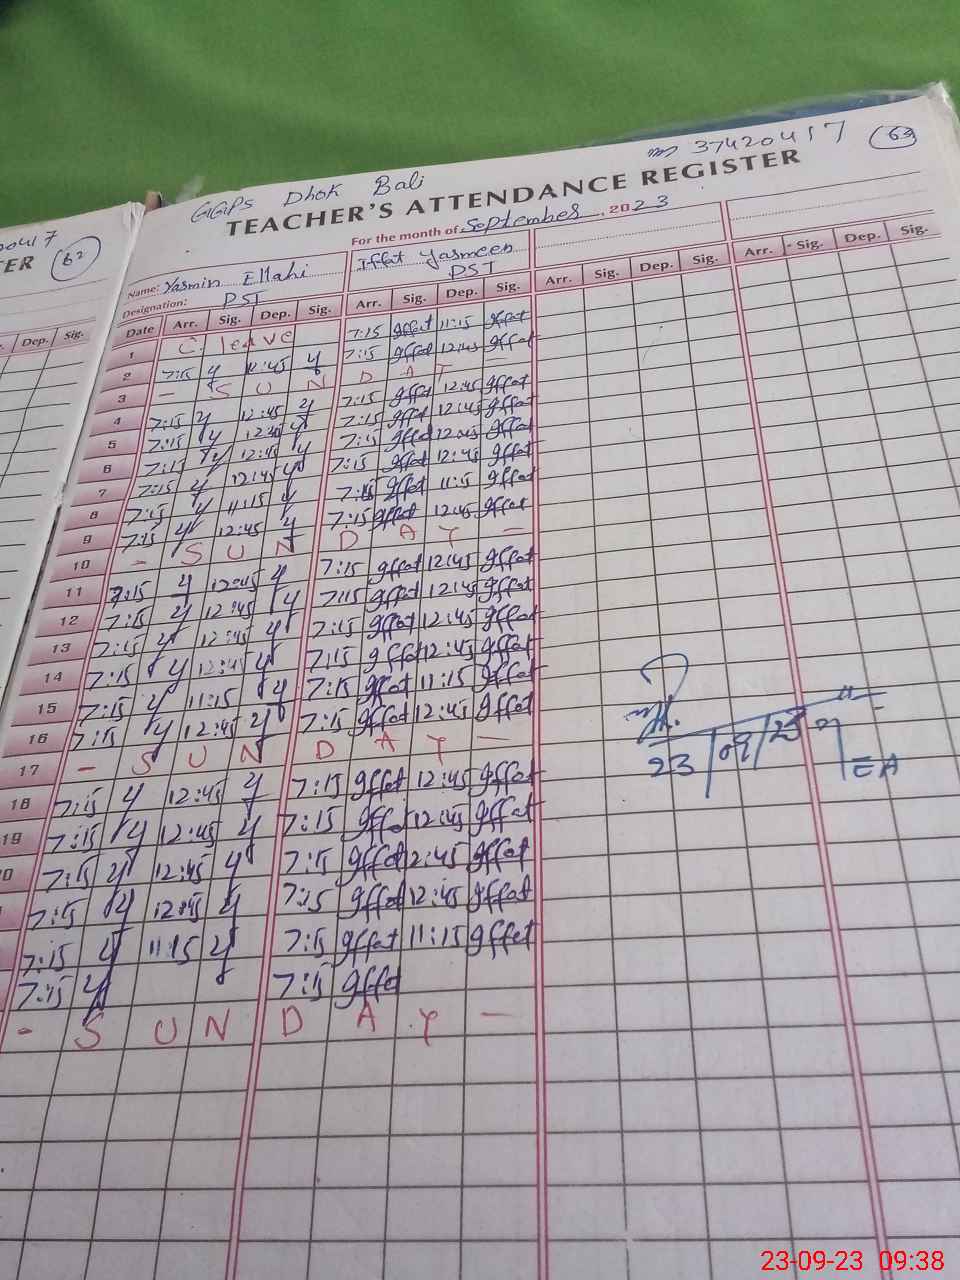 37420417 63
GGPS Dhok Bali
TEACHER'S ATTENDANCE REGISTER
For the month of September, 2023
Name: Yasmin Ellahi Iffat Yasmeen
Designation: PST PST
Date Arr. Sig. Dep. Sig. Arr. Sig. Dep. Sig. Arr. Sig. Dep. Sig. Arr. Sig. Dep. Sig.
1 C. leave 7:15 Iffat 11:15 Iffat
2 7:15 y 12:45 y 7:15 Iffat 12:45 Iffat
3 - S U N D A Y
4 7:15 y 12:45 y 7:15 Iffat 12:45 Iffat
5 7:15 y 12:45 y 7:15 Iffat 12:45 Iffat
6 7:15 y 12:45 y 7:15 Iffat 12:45 Iffat
7 7:15 y 12:45 y 7:15 Iffat 12:45 Iffat
8 7:15 y 11:15 y 7:15 Iffat 11:15 Iffat
9 7:15 y 12:45 y 7:15 Iffat 12:45 Iffat
10 - S U N D A Y -
11 7:15 y 12:45 y 7:15 Iffat 12:45 Iffat
12 7:15 y 12:45 y 7:15 Iffat 12:45 Iffat
13 7:15 y 12:45 y 7:15 Iffat 12:45 Iffat
14 7:15 y 12:45 y 7:15 Iffat 12:45 Iffat
15 7:15 y 11:15 y 7:15 Iffat 11:15 Iffat
16 7:15 y 12:45 y 7:15 Iffat 12:45 Iffat
17 - S U N D A Y -
18 7:15 y 12:45 y 7:15 Iffat 12:45 Iffat
19 7:15 y 12:45 y 7:15 Iffat 12:45 Iffat
20 7:15 y 12:45 y 7:15 Iffat 12:45 Iffat
7:15 y 12:45 y 7:15 Iffat 12:45 Iffat
7:15 y 11:15 y 7:15 Iffat 11:15 Iffat
7:15 y 7:15 Iffat
- S U N D A Y -
23/09/23
EA
0417
TER 62
Dep. Sig.
23-09-23 09:38